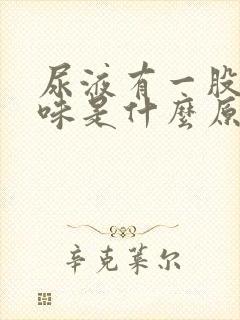 尿液有一股
味是什麼原
辛克莱尔